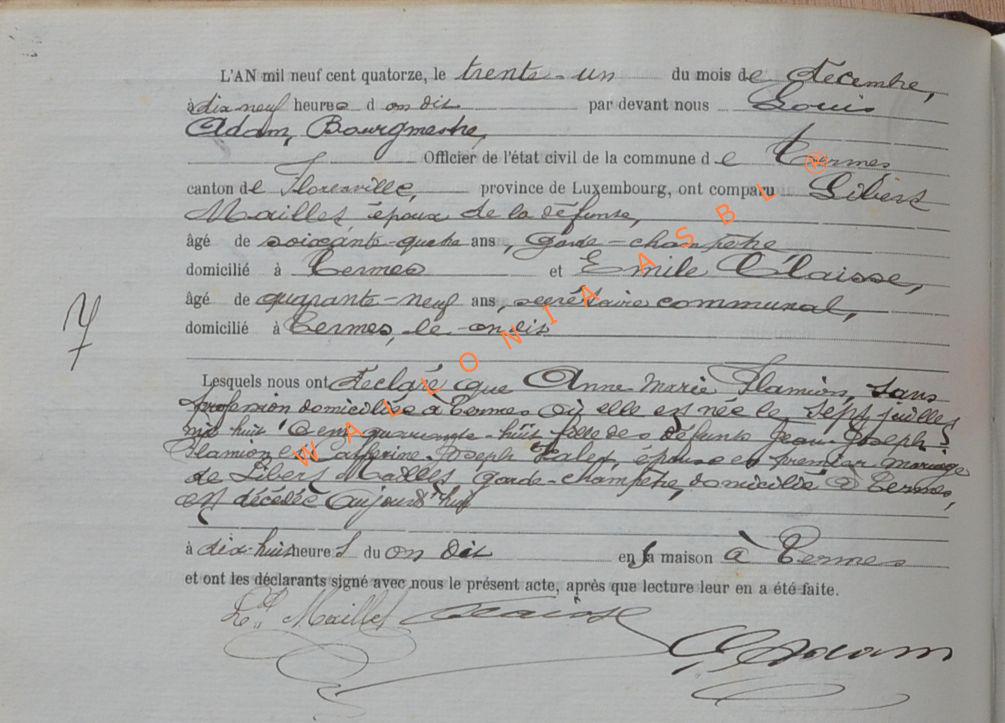 L'AN mil neuf cent quatorze, le trente-un du mois de décembre,
à dix neuf heures d on dit par devant nous Louis
Adam, Bourgmestre,
Officier de l'état civil de la commune d e Termes
canton de Florenville, province de Luxembourg, ont comparu Libert
Maillet époux de la défunte,
âgé de soixante-quatre ans, garde-champêtre
domicilié à Termes et Emile Claisse,
âgé de quarante-neuf ans, secrétaire communal,
domicilié à Termes, le on dit
7
Lesquels nous ont déclaré que Anne-Marie Flamion, sans
profession domiciliée à Termes où elle est née le sept juillet
mil huit cent quarante-huit fille des défunts Jean-Joseph
Flamion et Catherine-Joseph épouse en premier mariage
de Libert Maillet, garde-champêtre, domicilié à Termes,
est décédée aujourd'hui
à dix-huit heures du on dit en sa maison à Termes
et ont les déclarants signé avec nous le présent acte, après que lecture leur en a été faite.
Lt Maillet Claisse
L Adam
WALLONIA ASBL ®